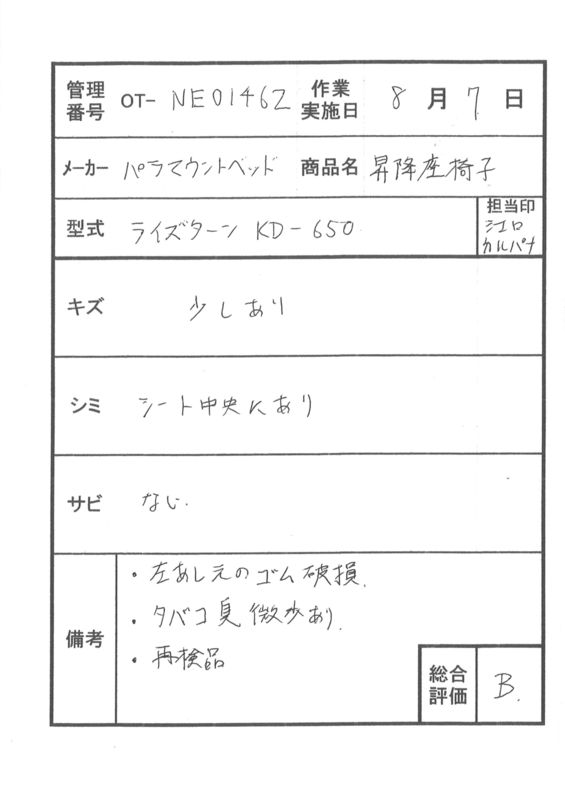 管理番号 OT- NE01462 作業実施日 8月7日
メーカー パラマウントベッド 商品名 昇降座椅子
型式 ライズターン KD-650 担当印
江口
カルパナ
キズ 少しあり
シミ シート中央にあり
サビ ない.
備考
・左あしえのゴム破損.
・タバコ臭 微少あり.
・再検品
総合評価 B.